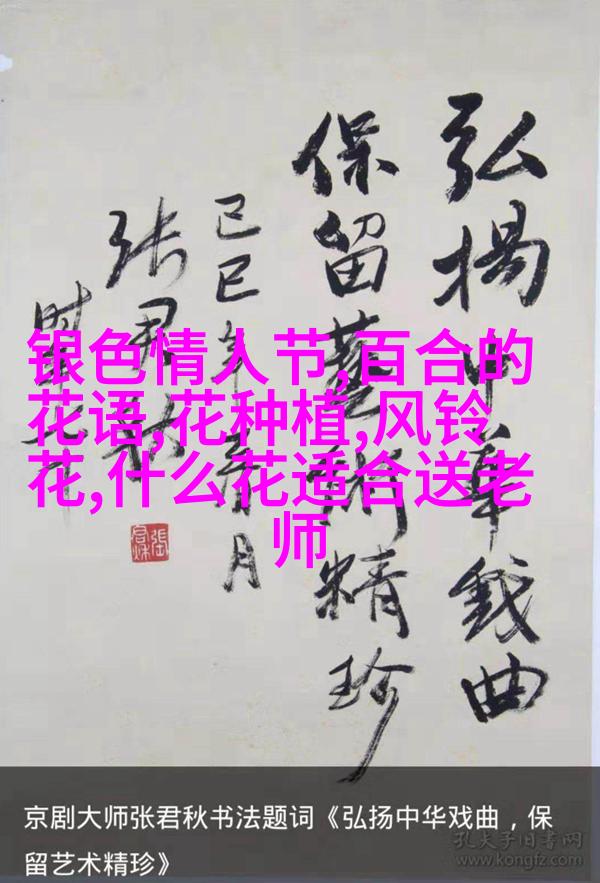 弘揚中華戲曲
保留藝術精珍
己巳年春月
张君秋
張君秋
银色情人节,百合的
花语,花种植,风铃
花,什么花适合送老
师
京剧大师张君秋书法题词《弘扬中华戏曲，保
留艺术精珍》
孔夫子旧书网
www.kongfz.com